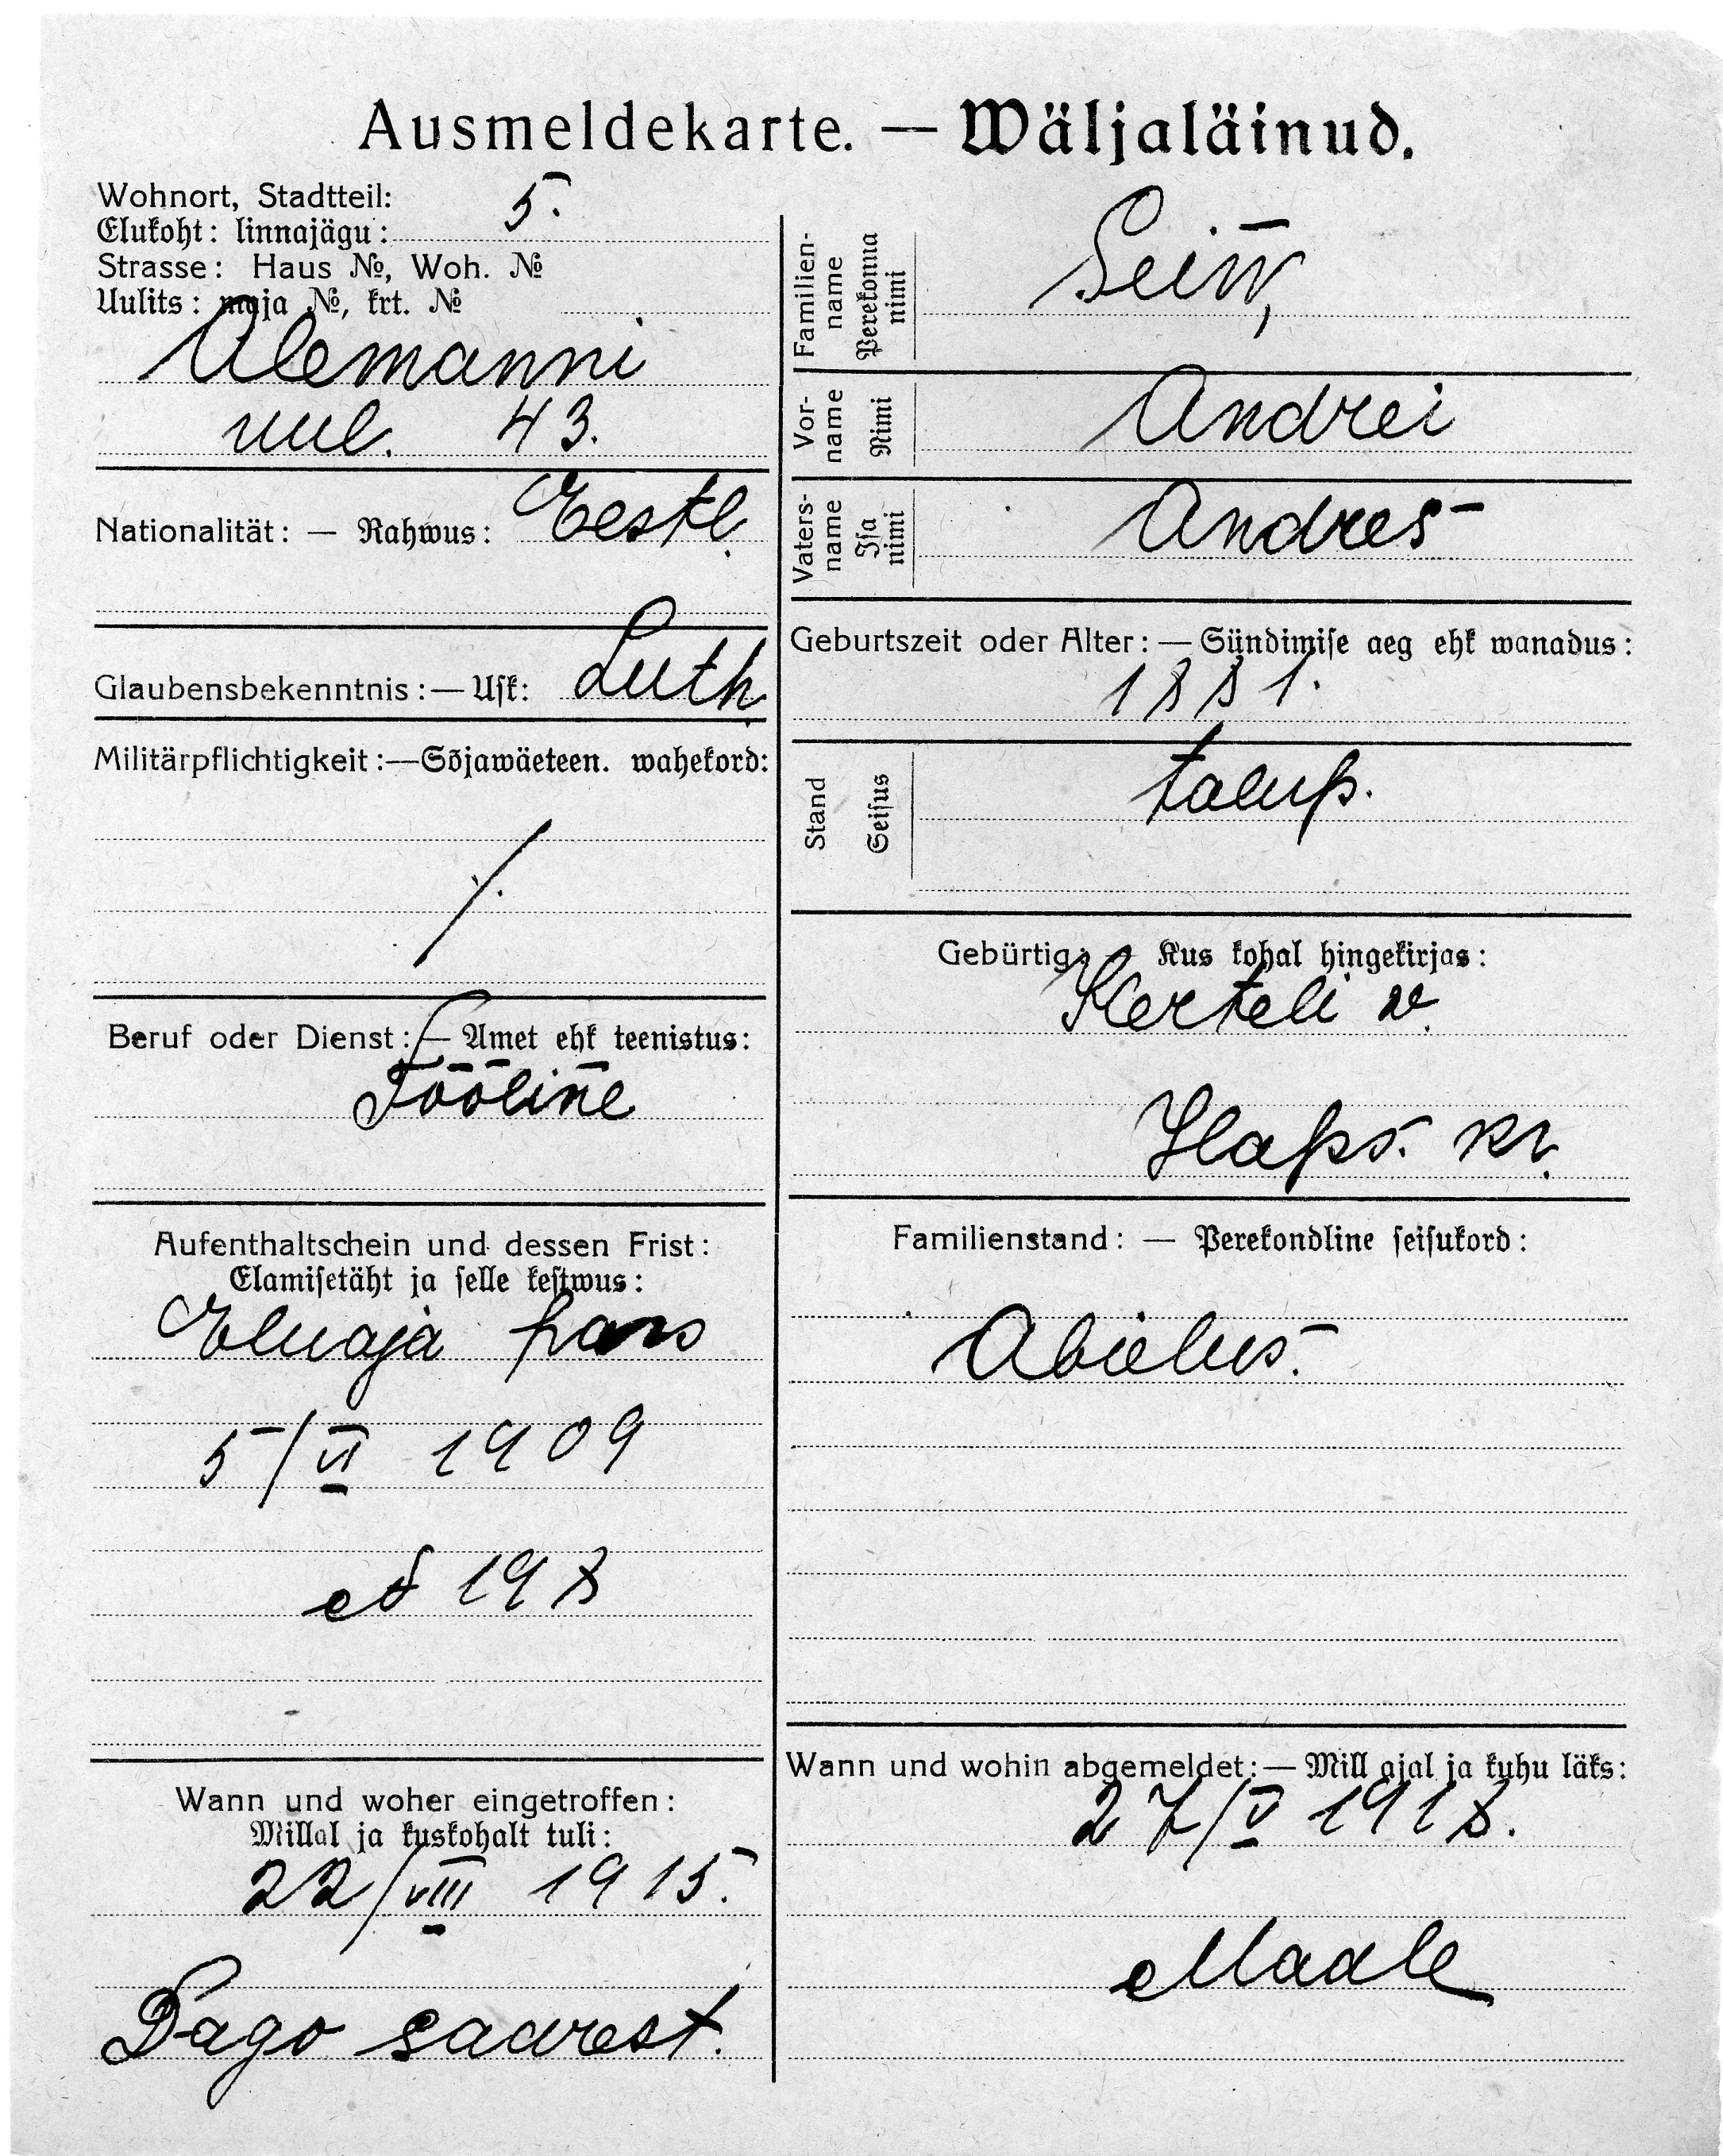 Ausmeldekarte. — Wäljaläinud.
Wohnort, Stadtteil: 5.
Elukoht: linnajägu:
Strasse: Haus №, Woh. №
Uulits: maja №, krt. №
Alemanni
uul. 43.
Nationalität: — Rahwus: Eestl.
Glaubensbekenntnis: — Usk: Luth.
Militärpflichtigkeit: — Sõjawäeteen. wahekord:
Beruf oder Dienst: — Amet ehk teenistus:
Tööline
Aufenthaltschein und dessen Frist:
Elamisetäht ja selle kestwus:
Eluaja pass
5/VI 1909
№ 198
Wann und woher eingetroffen:
Millal ja kuskohalt tuli:
22/VIII 1915.
Dago saarest.
Familien-
name
Perekonna
nimi
Seiw,
Vor-
name
Nimi
Andrei
Vaters-
name
Isa
nimi
Andres
Geburtszeit oder Alter: — Sündimise aeg ehk wanadus:
1881.
Stand
Seisus
talup.
Gebürtig: — Kus kohal hingekirjas:
Kerteli w.
Haps. kr.
Familienstand: — Perekondline seisukord:
Abielus.
Wann und wohin abgemeldet: — Mill ajal ja kuhu läks:
27/V 1918.
Maale